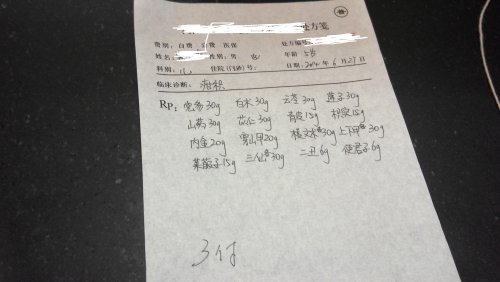 处方笺
费别：自费 公费 医保 处方编号：
姓名： 性别：男 女 年龄 5岁
科别：儿 住院（门诊）号： 日期：2014年6月27日
临床诊断：疳积
Rp：党参30g 白术30g 云苓30g 莲子30g
山药30g 苡仁30g 青皮15g 枳实15g
内金20g 山甲20g 30g 30g
莱菔子15g 三仙30g 二丑6g 使君子6g
3付